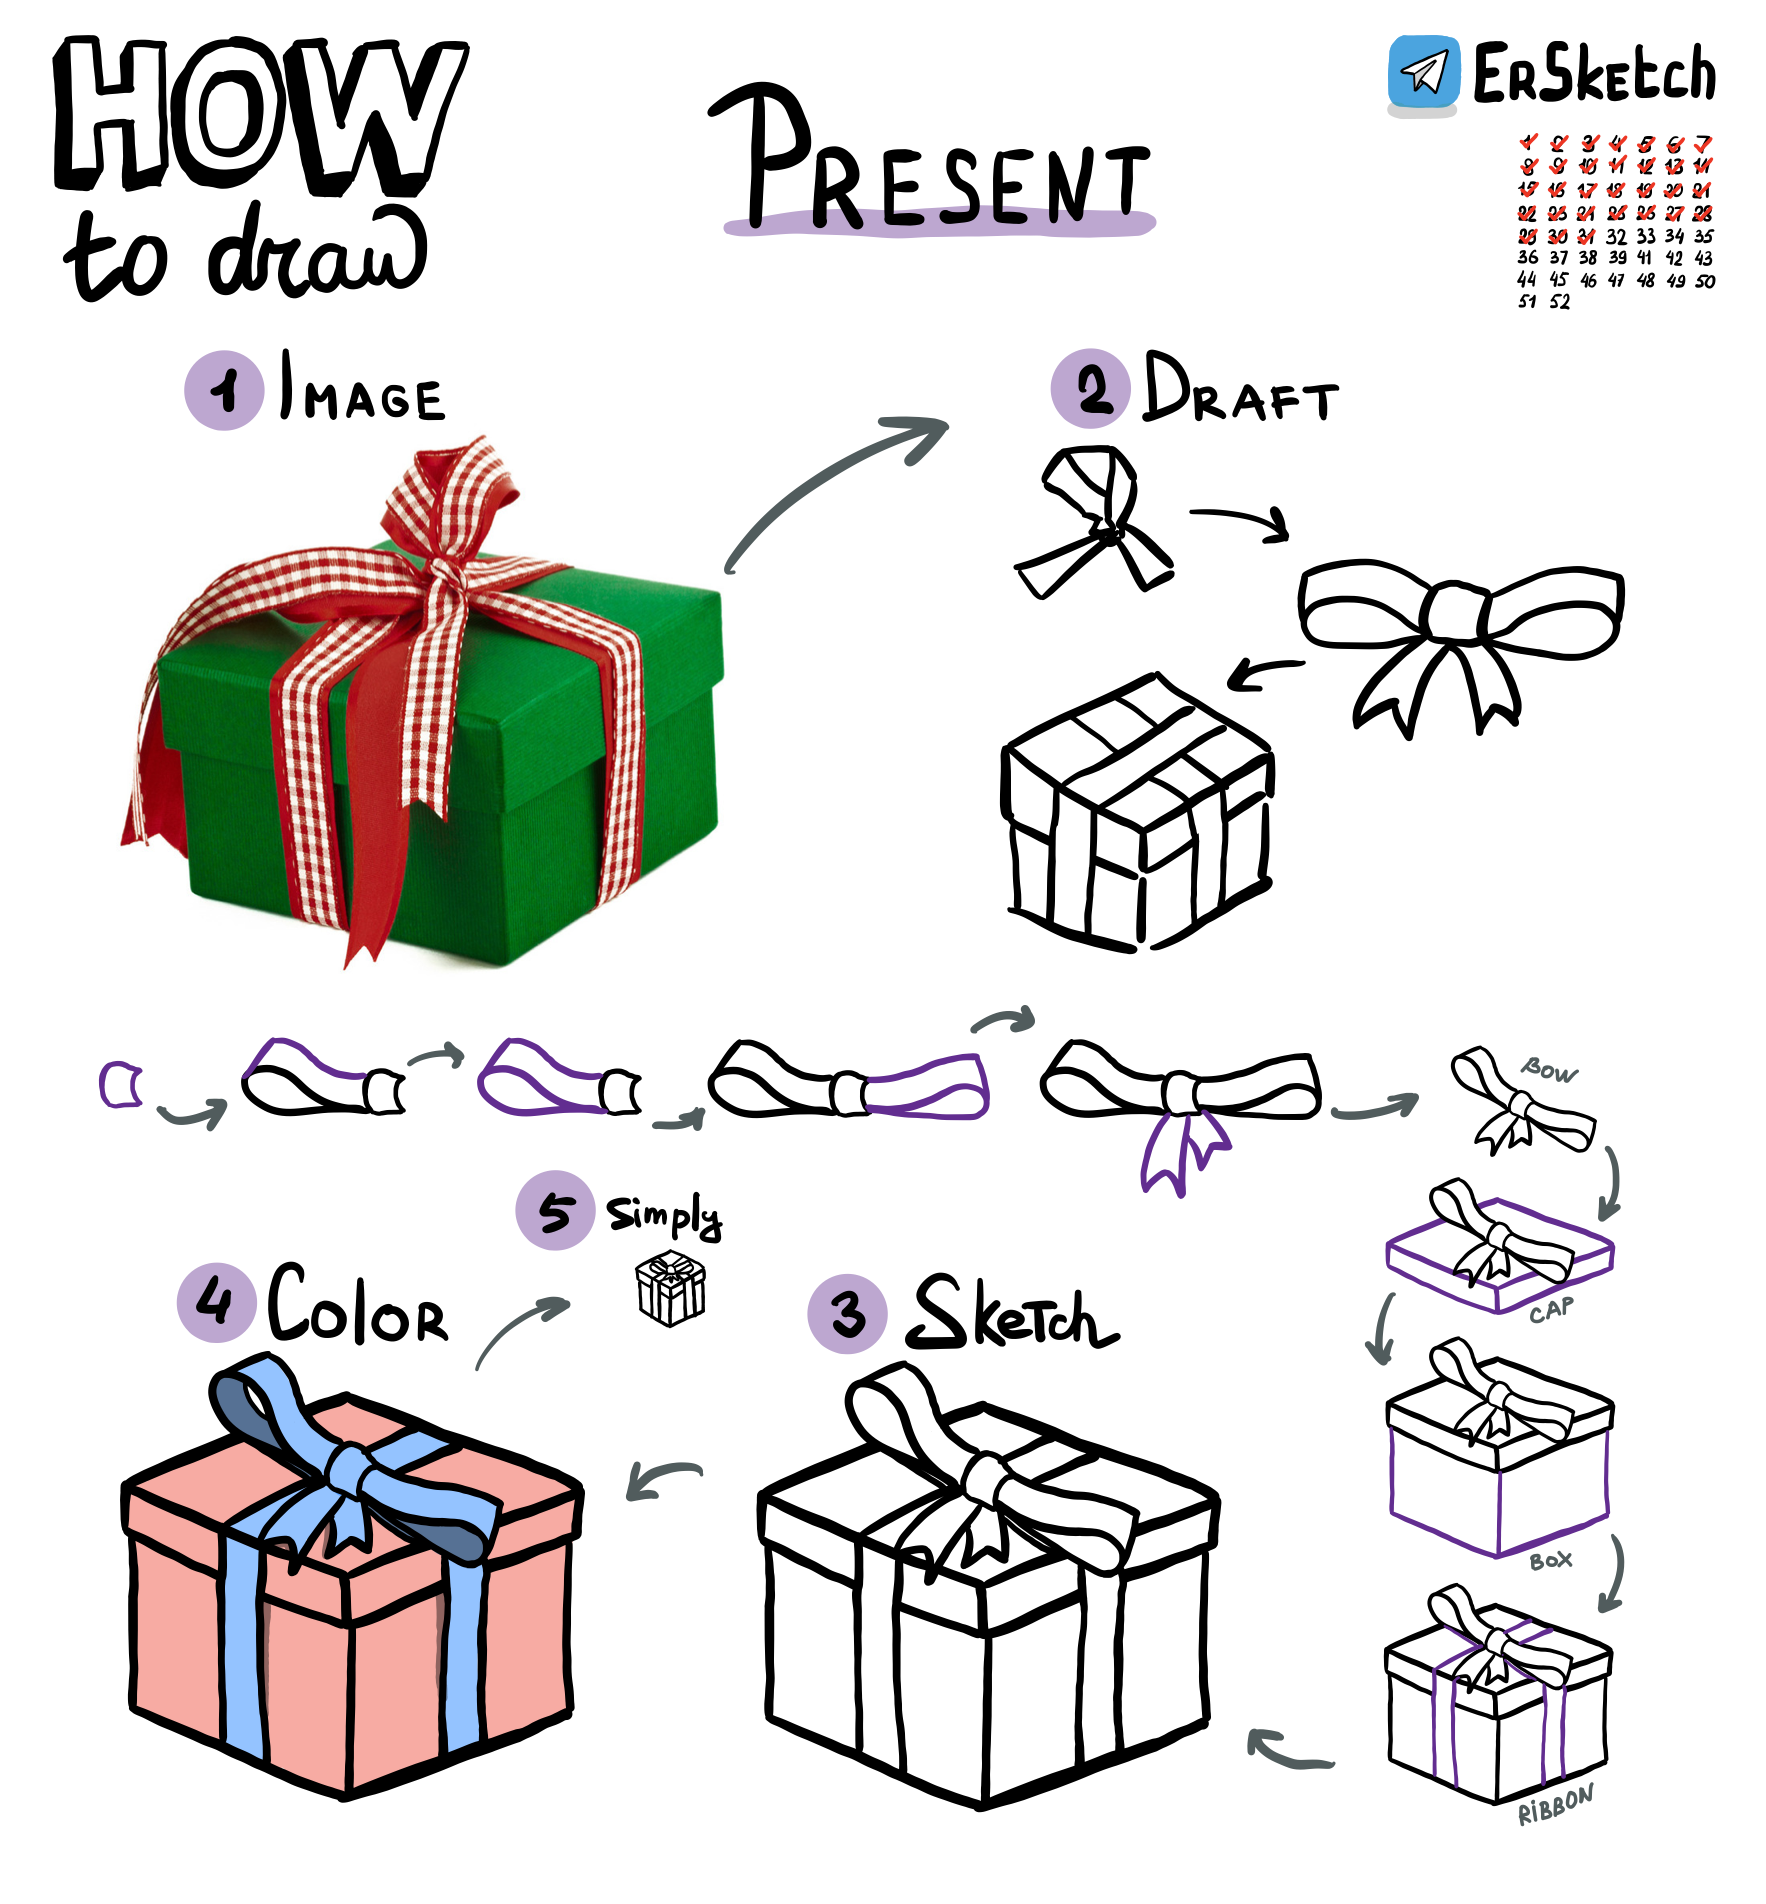 HOW
to draw
PRESENT
ERSketch
1 2 3 4 5 6 7
8 9 10 11 12 13 14
15 16 17 18 19 20 21
22 23 24 25 26 27 28
29 30 31 32 33 34 35
36 37 38 39 41 42 43
44 45 46 47 48 49 50
51 52
1 IMAGE
2 DRAFT
BOW
CAP
BOX
RIBBON
3 SKeTch
4 ColoR
5 Simply